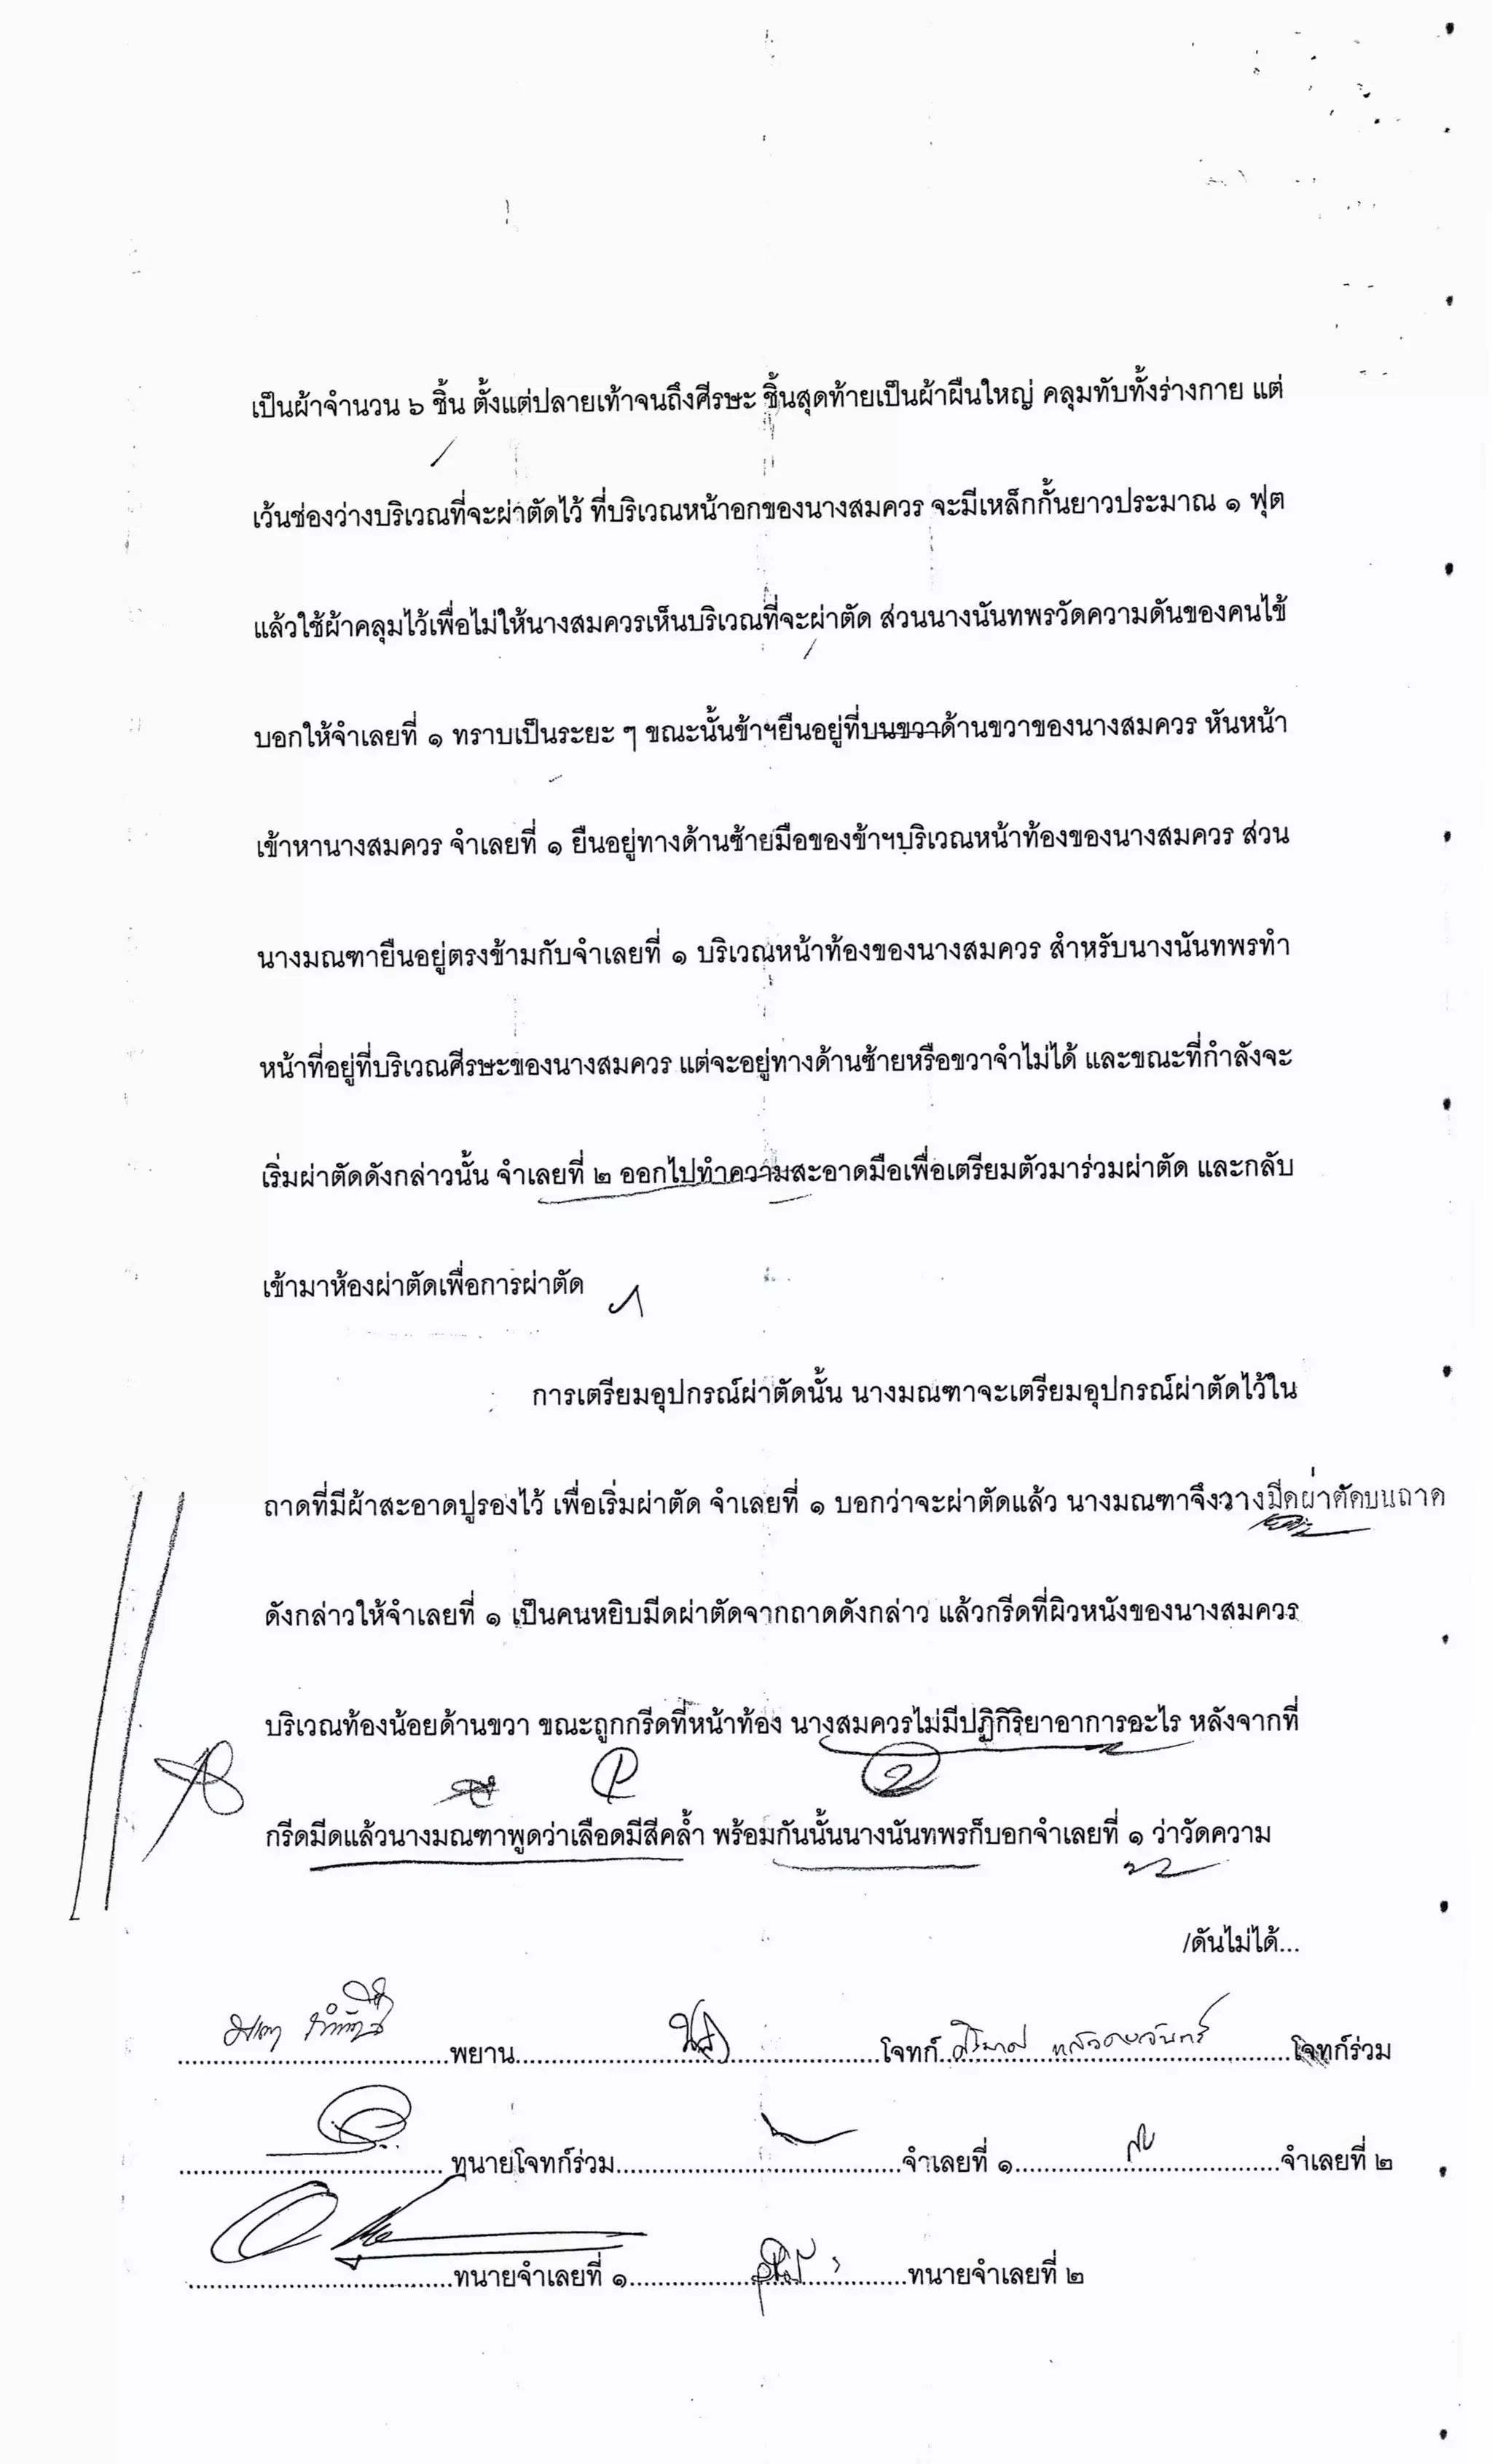 เป็นผ้าจำนวน ๖ ชิ้น ตั้งแต่ปลายเท้าจนถึงศีรษะ ชิ้นสุดท้ายเป็นผ้าผืนใหญ่ คลุมทับทั้งร่างกาย แต่
เว้นช่องว่างบริเวณที่จะผ่าตัดไว้ ที่บริเวณหน้าอกของนางสมควร จะมีเหล็กกั้นยาวประมาณ ๑ ฟุต
แล้วใช้ผ้าคลุมไว้เพื่อไม่ให้นางสมควรเห็นบริเวณที่จะผ่าตัด ส่วนนางนันทพรวัดความดันของคนไข้
บอกให้จำเลยที่ ๑ ทราบเป็นระยะ ๆ ขณะนั้นข้าฯยืนอยู่ที่บนขวาด้านขวาของนางสมควร หันหน้า
เข้าหานางสมควร จำเลยที่ ๑ ยืนอยู่ทางด้านซ้ายมือของข้าฯบริเวณหน้าท้องของนางสมควร ส่วน
นางมณฑายืนอยู่ตรงข้ามกับจำเลยที่ ๑ บริเวณหน้าท้องของนางสมควร สำหรับนางนันทพรทำ
หน้าที่อยู่ที่บริเวณศีรษะของนางสมควร แต่จะอยู่ทางด้านซ้ายหรือขวาจำไม่ได้ และขณะที่กำลังจะ
เริ่มผ่าตัดดังกล่าวนั้น จำเลยที่ ๒ ออกไปทำความสะอาดมือเพื่อเตรียมตัวมาร่วมผ่าตัด และกลับ
เข้ามาห้องผ่าตัดเพื่อการผ่าตัด
การเตรียมอุปกรณ์ผ่าตัดนั้น นางมณฑาจะเตรียมอุปกรณ์ผ่าตัดไว้ใน
ถาดที่มีผ้าสะอาดปูรองไว้ เพื่อเริ่มผ่าตัด จำเลยที่ ๑ บอกว่าจะผ่าตัดแล้ว นางมณฑาจึงวางมีดผ่าตัดบนถาด
ดังกล่าวให้จำเลยที่ ๑ เป็นคนหยิบมีดผ่าตัดจากถาดดังกล่าว แล้วกรีดที่ผิวหนังของนางสมควร
บริเวณท้องน้อยด้านขวา ขณะถูกกรีดที่หน้าท้อง นางสมควรไม่มีปฏิกิริยาอาการอะไร หลังจากที่
กรีดมีดแล้วนางมณฑาพูดว่าเลือดมีสีคล้ำ พร้อมกันนั้นนางนันทพรก็บอกจำเลยที่ ๑ ว่าวัดความ
/ดันไม่ได้...
พยาน โจทก์ โจทก์ร่วม
ทนายโจทก์ร่วม จำเลยที่ ๑ จำเลยที่ ๒
ทนายจำเลยที่ ๑ ทนายจำเลยที่ ๒